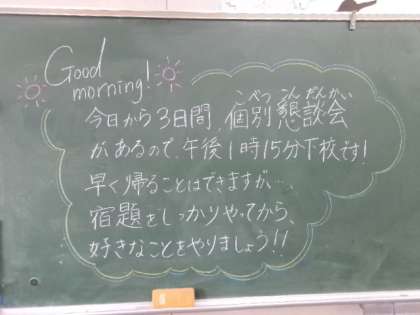 Good
morning!
こべつ こんだんかい
今日から3日間、個別懇談会
があるので、午後1時15分下校です!
早く帰ることはできますが…、
宿題をしっかりやってから、
好きなことをやりましょう!!